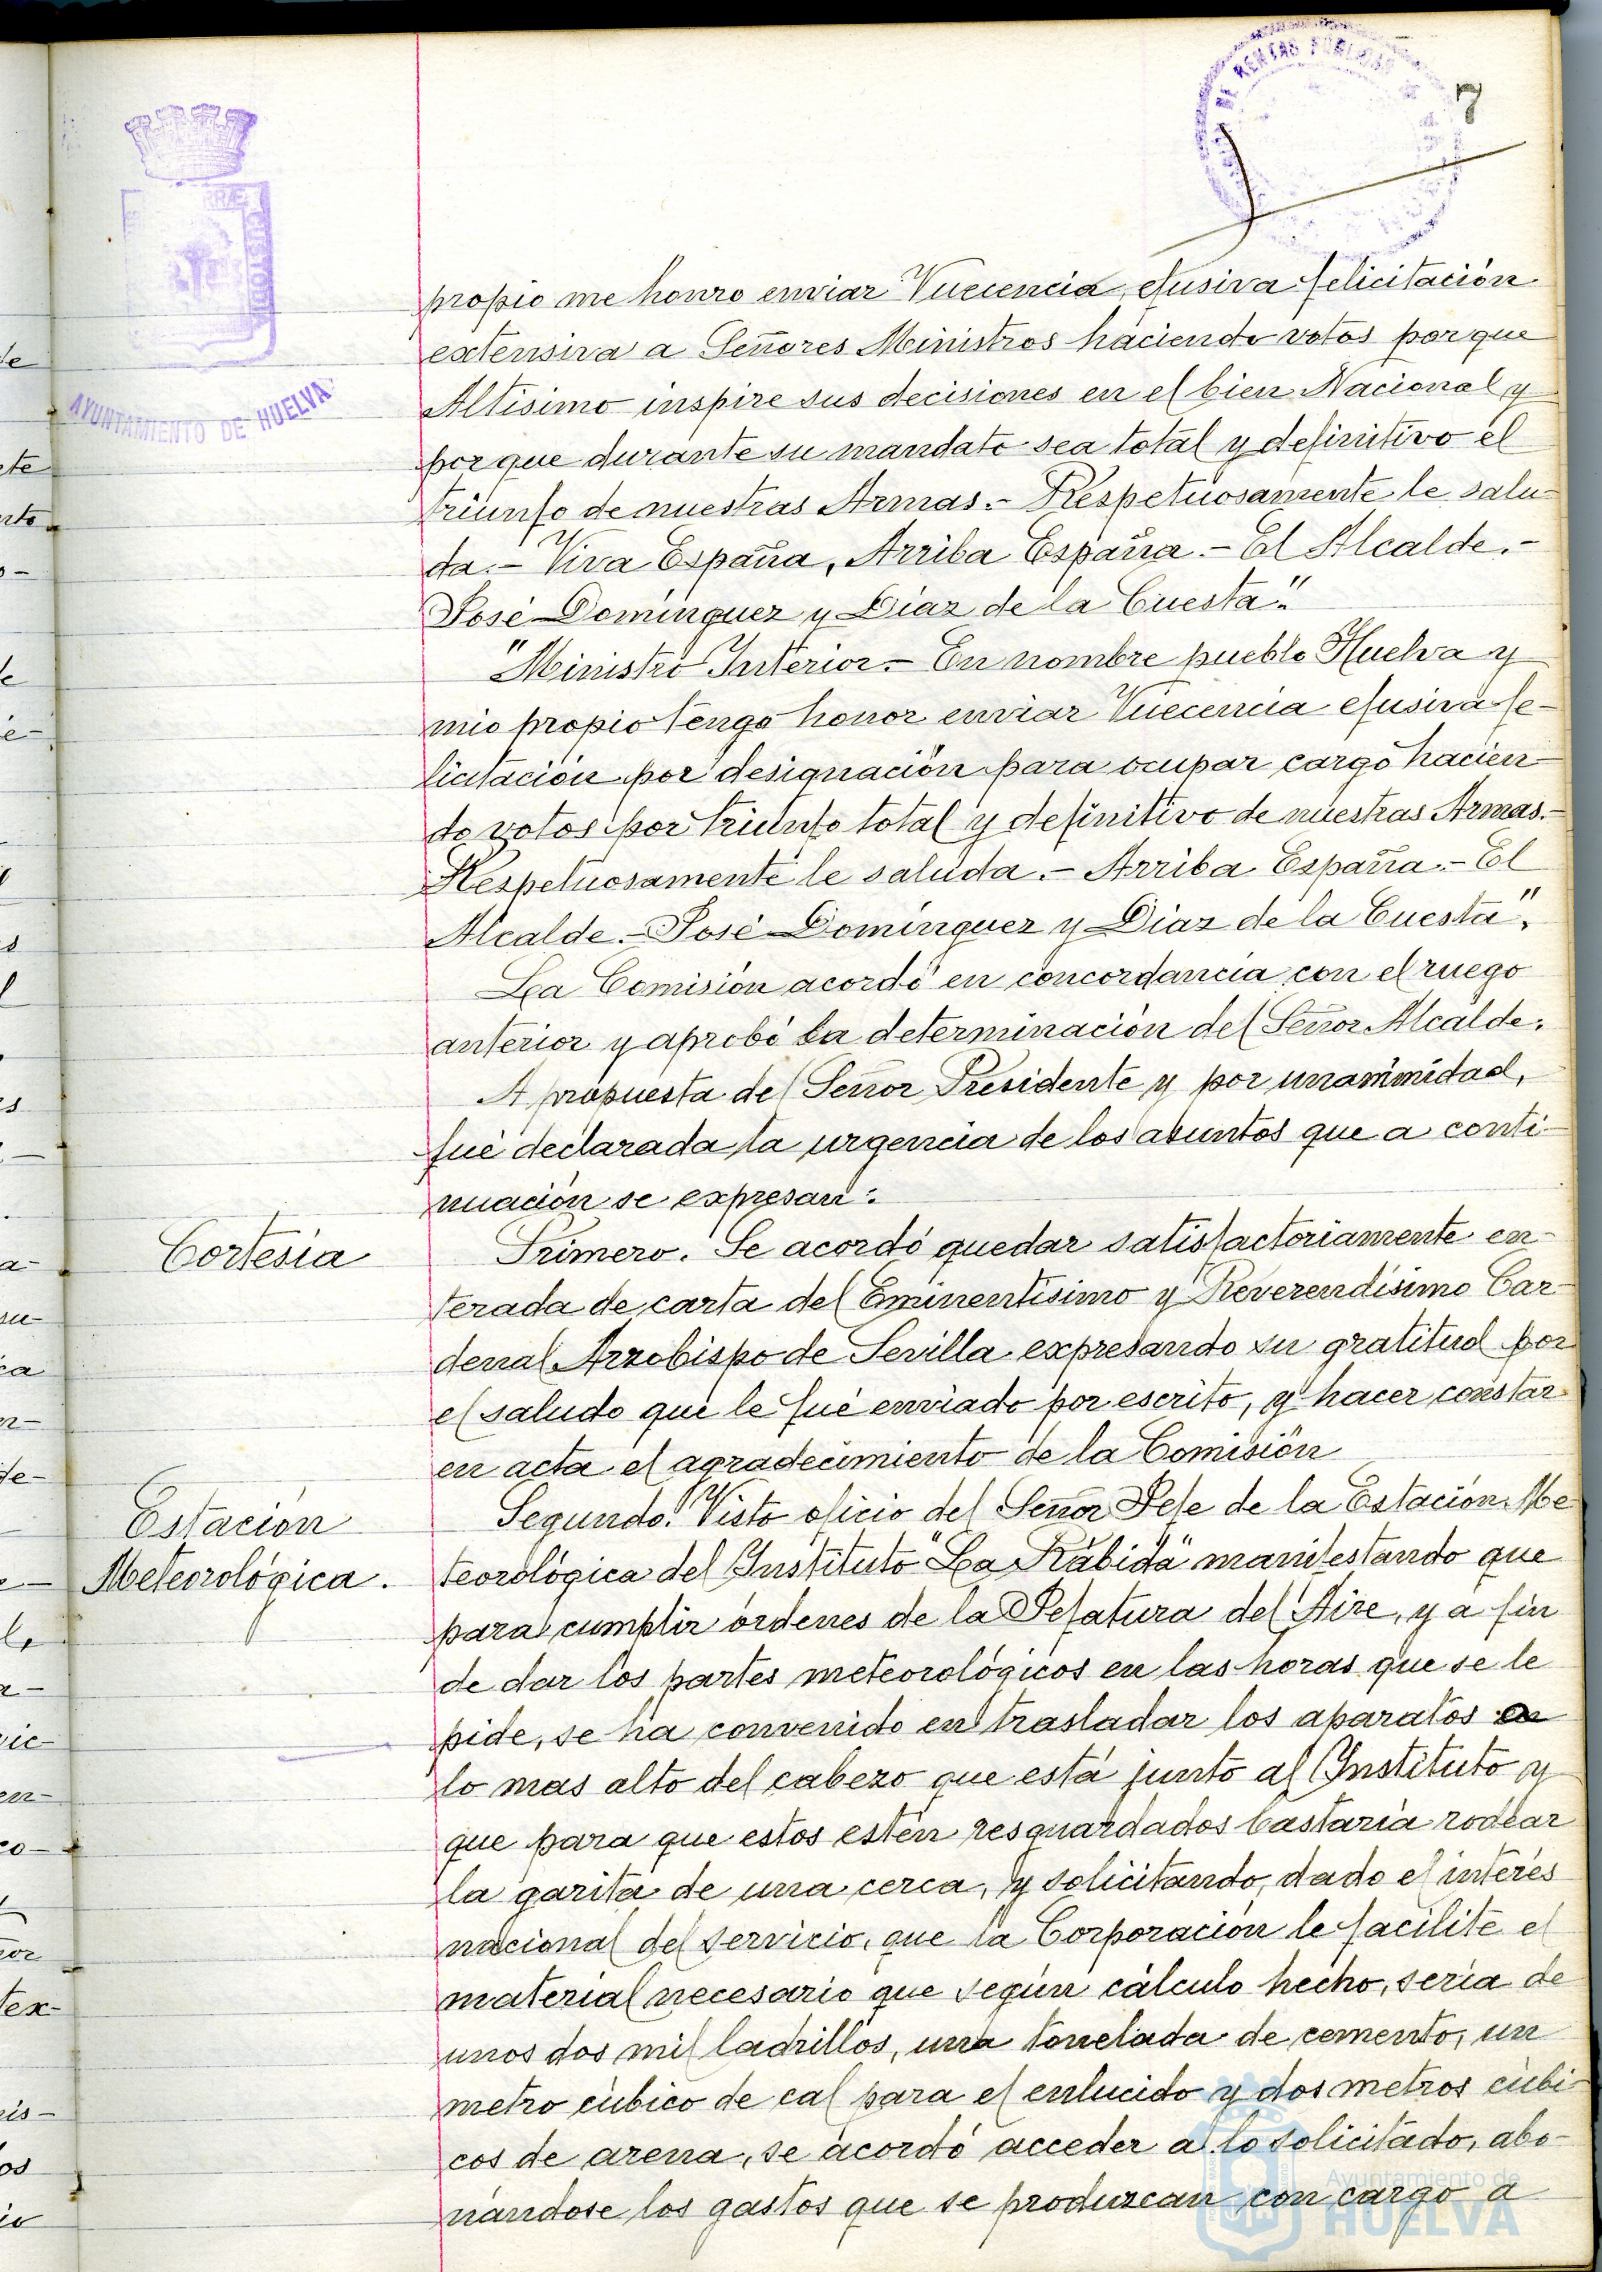 DE RENTAS PUBLICAS
7
AYUNTAMIENTO DE HUELVA
CUSTODI
propio me honro enviar Vuecencia efusiva felicitación
extensiva a Señores Ministros haciendo votos porque
Altísimo inspire sus decisiones en el bien Nacional y
porque durante su mandato sea total y definitivo el
triunfo de nuestras Armas.- Respetuosamente le salu-
da.- Viva España, Arriba España.- El Alcalde.-
José Domínguez y Díaz de la Cuesta."
"Ministro Interior.- En nombre pueblo Huelva y
mio propio tengo honor enviar Vuecencia efusiva fe-
licitación por designación para ocupar cargo hacien-
do votos por triunfo total y definitivo de nuestras Armas.-
Respetuosamente le saluda.- Arriba España.- El
Alcalde.- José Domínguez y Díaz de la Cuesta".
La Comisión acordó en concordancia con el ruego
anterior y aprobó la determinación del Señor Alcalde.
A propuesta del Señor Presidente y por unanimidad,
fué declarada la urgencia de los asuntos que a conti-
nuación se expresan:
Cortesía
Primero. Se acordó quedar satisfactoriamente en-
terada de carta del Eminentísimo y Reverendísimo Car-
denal Arzobispo de Sevilla expresando su gratitud por
el saludo que le fué enviado por escrito, y hacer constar
en acta el agradecimiento de la Comisión
Estación
Meteorológica.
Segundo. Visto oficio del Señor Jefe de la Estación Me
teorológica del Instituto "La Rábida" manifestando que
para cumplir órdenes de la Jefatura del Aire, y a fin
de dar los partes meteorológicos en las horas que se le
pide, se ha convenido en trasladar los aparatos a
lo mas alto del cabezo que está junto al Instituto y
que para que estos estén resguardados bastaría rodear
la garita de una cerca, y solicitando, dado el interés
nacional del servicio, que la Corporación le facilite el
material necesario que según cálculo hecho, sería de
unos dos mil ladrillos, una tonelada de cemento, un
metro cúbico de cal para el enlucido y dos metros cúbi-
cos de arena, se acordó acceder a lo solicitado, abo-
nándose los gastos que se produzcan con cargo a
Ayuntamiento de
HUELVA